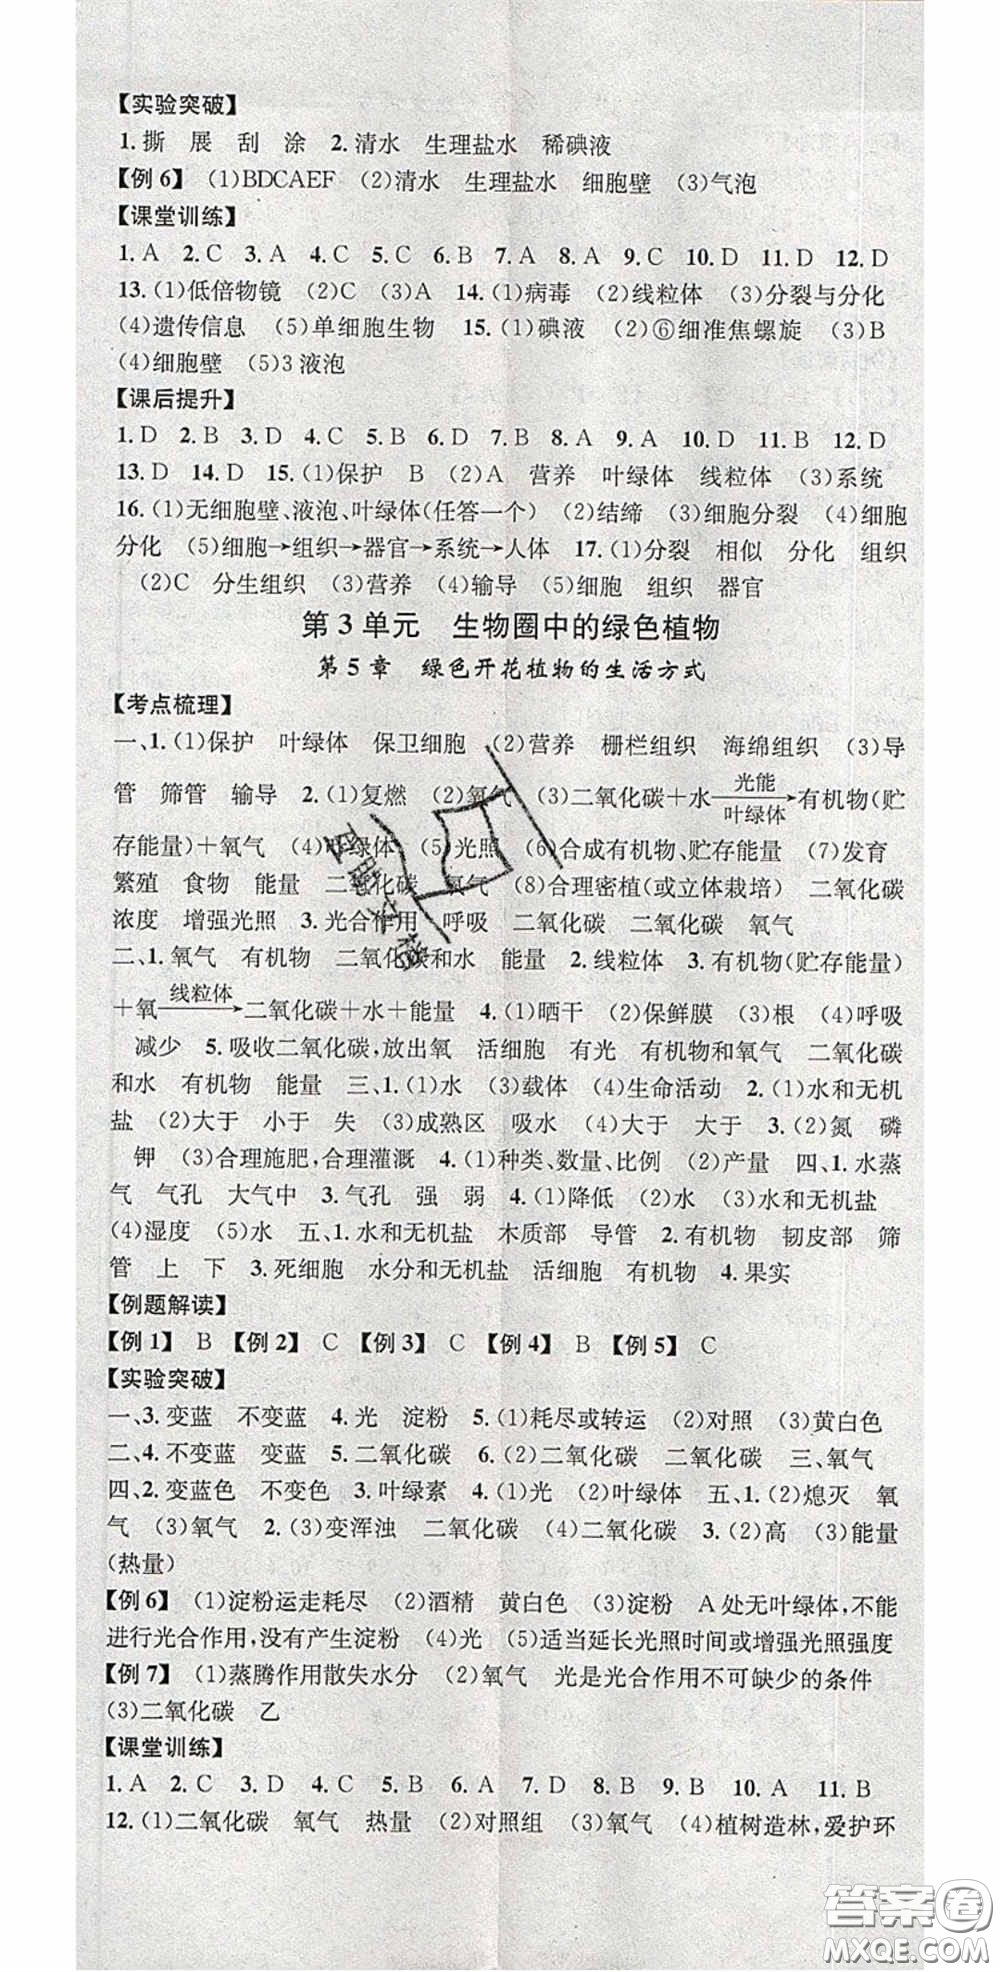 【实验突破】
1.撕 展 刮 涂 2.清水 生理盐水 稀碘液
【例6】 (1)BDCAEF (2)清水 生理盐水 细胞壁 (3)气泡
【课堂训练】
1.A 2.C 3.A 4.C 5.C 6.B 7.A 8.A 9.C 10.D 11.D 12.D
13.(1)低倍物镜 (2)C (3)A 14.(1)病毒 (2)线粒体 (3)分裂与分化
(4)遗传信息 (5)单细胞生物 15.(1)碘液 (2)⑥细准焦螺旋 (3)B
(4)细胞壁 (5)3 液泡
【课后提升】
1.D 2.B 3.D 4.C 5.B 6.D 7.B 8.A 9.A 10.D 11.B 12.D
13.D 14.D 15.(1)保护 B (2)A 营养 叶绿体 线粒体 (3)系统
16.(1)无细胞壁、液泡、叶绿体(任答一个) (2)结缔 (3)细胞分裂 (4)细胞
分化 (5)细胞→组织→器官→系统→人体 17.(1)分裂 相似 分化 组织
(2)C 分生组织 (3)营养 (4)输导 (5)细胞 组织 器官
第3单元 生物圈中的绿色植物
第5章 绿色开花植物的生活方式
【考点梳理】
一、1.(1)保护 叶绿体 保卫细胞 (2)营养 栅栏组织 海绵组织 (3)导
管 筛管 输导 2.(1)复燃 (2)氧气 (3)二氧化碳+水 光能 叶绿体 →有机物(贮
存能量)+氧气 (4)叶绿体 (5)光照 (6)合成有机物、贮存能量 (7)发育
繁殖 食物 能量 二氧化碳 氧气 (8)合理密植(或立体栽培) 二氧化碳
浓度 增强光照 3.光合作用 呼吸 二氧化碳 二氧化碳 氧气
二、1.氧气 有机物 二氧化碳和水 能量 2.线粒体 3.有机物(贮存能量)
+氧 线粒体 →二氧化碳+水+能量 4.(1)晒干 (2)保鲜膜 (3)根 (4)呼吸
减少 5.吸收二氧化碳,放出氧 活细胞 有光 有机物和氧气 二氧化碳
和水 有机物 能量 三、1.(1)水 (3)载体 (4)生命活动 2.(1)水和无机
盐 (2)大于 小于 失 (3)成熟区 吸水 (4)大于 大于 3.(2)氮 磷
钾 (3)合理施肥,合理灌溉 4.(1)种类、数量、比例 (2)产量 四、1.水蒸
气 气孔 大气中 3.气孔 强 弱 4.(1)降低 (2)水 (3)水和无机盐
(4)湿度 (5)水 五、1.水和无机盐 木质部 导管 2.有机物 韧皮部 筛
管 上 下 3.死细胞 水分和无机盐 活细胞 有机物 4.果实
【例题解读】
【例1】 B 【例2】 C 【例3】 C 【例4】 B 【例5】 C
【实验突破】
一、3.变蓝 不变蓝 4.光 淀粉 5.(1)耗尽或转运 (2)对照 (3)黄白色
二、4.不变蓝 变蓝 5.二氧化碳 6.(2)二氧化碳 二氧化碳 三、氧气
四、2.变蓝色 不变色 3.叶绿素 4.(1)光 (2)叶绿体 五、1.(2)熄灭 氧
气 (3)氧气 2.(3)变浑浊 二氧化碳 (4)二氧化碳 3.(2)高 (3)能量
(热量)
【例6】 (1)淀粉运走耗尽 (2)酒精 黄白色 (3)淀粉 A处无叶绿体,不能
进行光合作用,没有产生淀粉 (4)光 (5)适当延长光照时间或增强光照强度
【例7】 (1)蒸腾作用散失水分 (2)氧气 光是光合作用不可缺少的条件
(3)二氧化碳 乙
【课堂训练】
1.A 2.C 3.D 4.C 5.B 6.A 7.D 8.B 9.B 10.A 11.B
12.(1)二氧化碳 氧气 热量 (2)对照组 (3)氧气 (4)植树造林,爱护环
答案圈
MXQE.COM